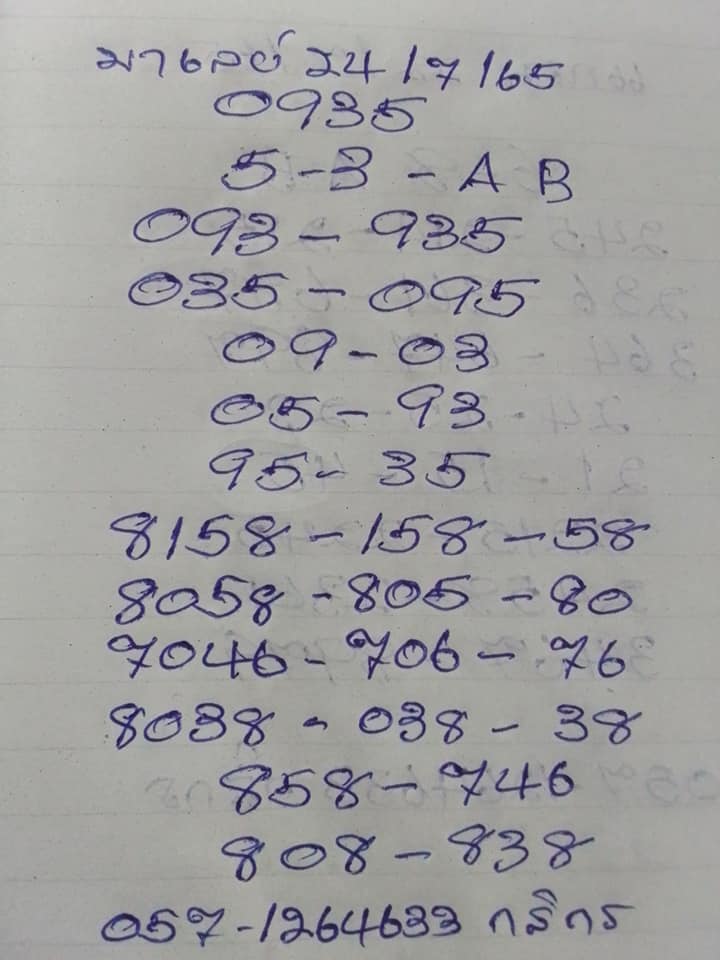 มาเลย์ 24/7/65
0935
5-3-AB
093-935
035-095
09-03
05-93
95-35
8158-158-58
8058-805-80
7046-706-76
8038-038-38
858-746
808-838
057-1264633 กสิกร